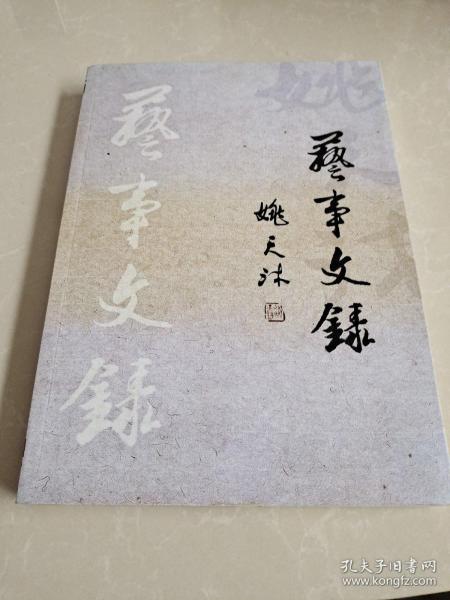 藝事文錄
姚天沐
藝事文錄
姚
孔夫子旧书网
www.kongfz.com